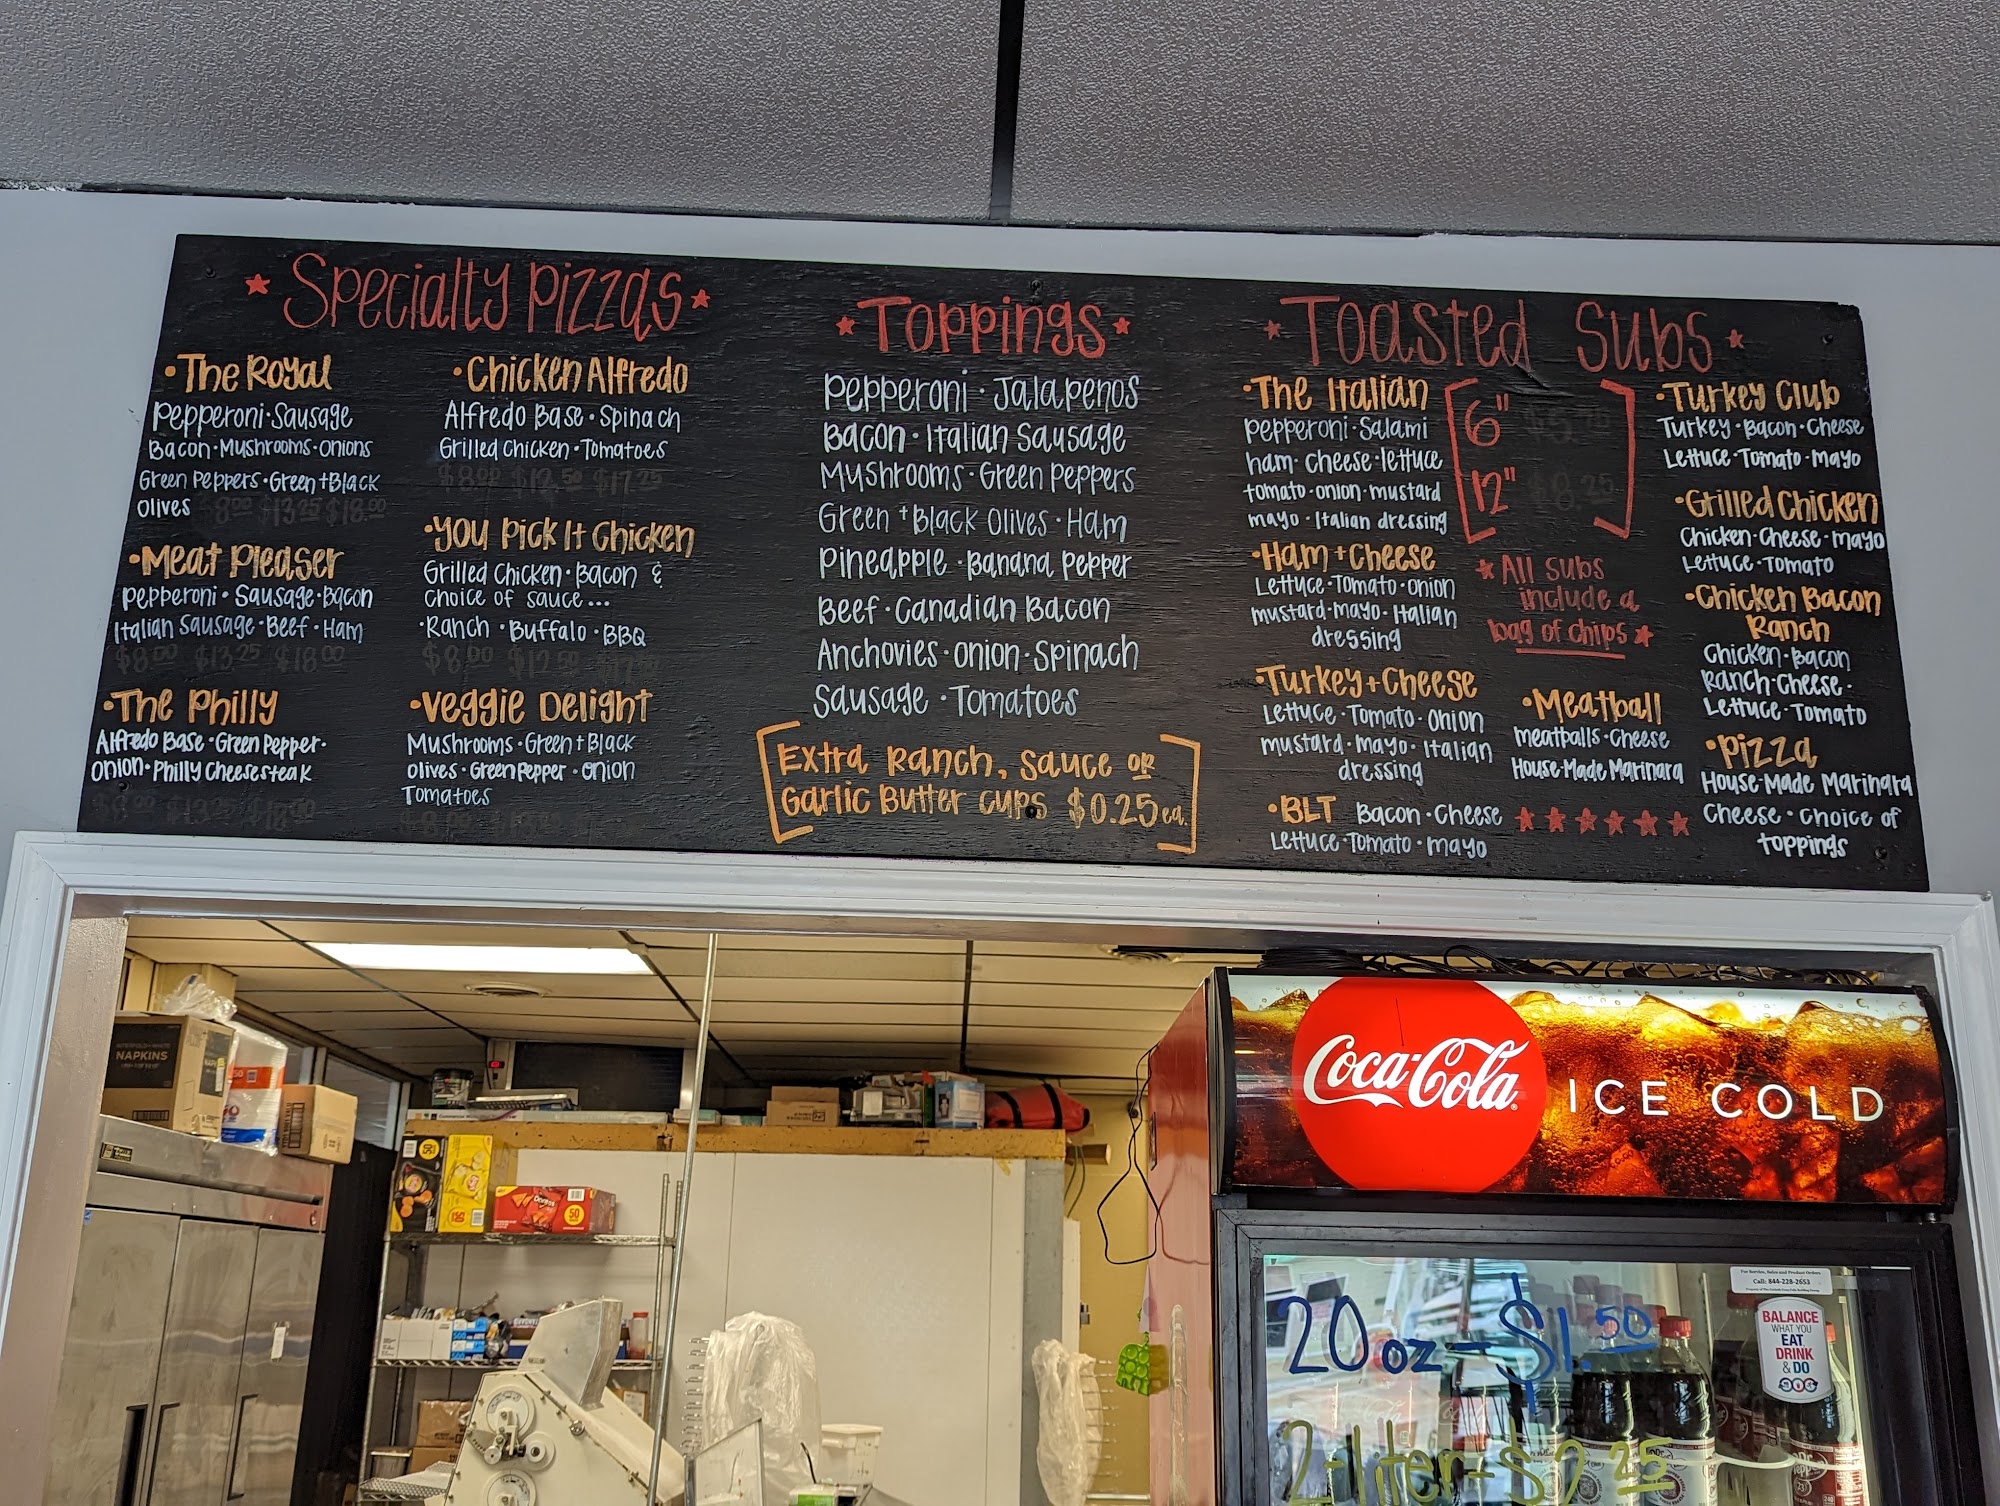 Specialty Pizzas
• The Royal
Pepperoni • Sausage
Bacon • Mushrooms • Onions
Green Peppers • Green + Black
Olives
$8.00 $13.25 $18.00
• Meat Pleaser
Pepperoni • Sausage • Bacon
Italian Sausage • Beef • Ham
$8.00 $13.25 $18.00
• The Philly
Alfredo Base • Green Pepper •
Onion • Philly Cheesesteak
$8.00 $13.25 $18.00
• Chicken Alfredo
Alfredo Base • Spinach
Grilled Chicken • Tomatoes
$8.00 $12.50 $17.25
• You Pick It Chicken
Grilled Chicken • Bacon &
Choice of sauce...
• Ranch • Buffalo • BBQ
$8.00 $12.50
• Veggie Delight
Mushrooms • Green + Black
Olives • Green Pepper • Onion
Tomatoes
Toppings
Pepperoni • Jalapenos
Bacon • Italian Sausage
Mushrooms • Green Peppers
Green + Black Olives • Ham
Pineapple • Banana Pepper
Beef • Canadian Bacon
Anchovies • Onion • Spinach
Sausage • Tomatoes
Extra Ranch, Sauce or
Garlic Butter cups $0.25 ea.
Toasted Subs
• The Italian
Pepperoni • Salami
ham • Cheese • lettuce
tomato • onion • mustard
mayo • Italian dressing
• Ham + Cheese
Lettuce • Tomato • onion
mustard • mayo • Italian
dressing
• Turkey + Cheese
Lettuce • Tomato • Onion
mustard • Mayo • Italian
dressing
• BLT Bacon • Cheese
Lettuce • Tomato • mayo
6"
12" $8.25
All subs
include a
bag of chips
• Meatball
meatballs • Cheese
House-Made Marinara
• Turkey Club
Turkey • Bacon • Cheese
Lettuce • Tomato • Mayo
• Grilled Chicken
Chicken • Cheese • mayo
Lettuce • Tomato
• Chicken Bacon
Ranch
Chicken • Bacon
Ranch • Cheese •
Lettuce • Tomato
• Pizza
House-Made Marinara
Cheese • Choice of
toppings
NAPKINS
50
Doritos
50
500
Coca-Cola ICE COLD
For Service, Sales and Product Orders
Call: 844-228-2653
BALANCE
WHAT YOU
EAT
DRINK
& DO
20oz - $1.50
2-liter - $2.25